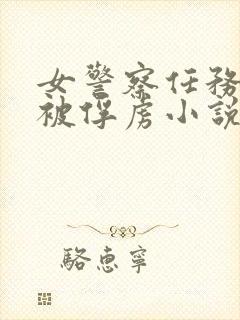 女警察任務
被俘虏小説
駱惠寧